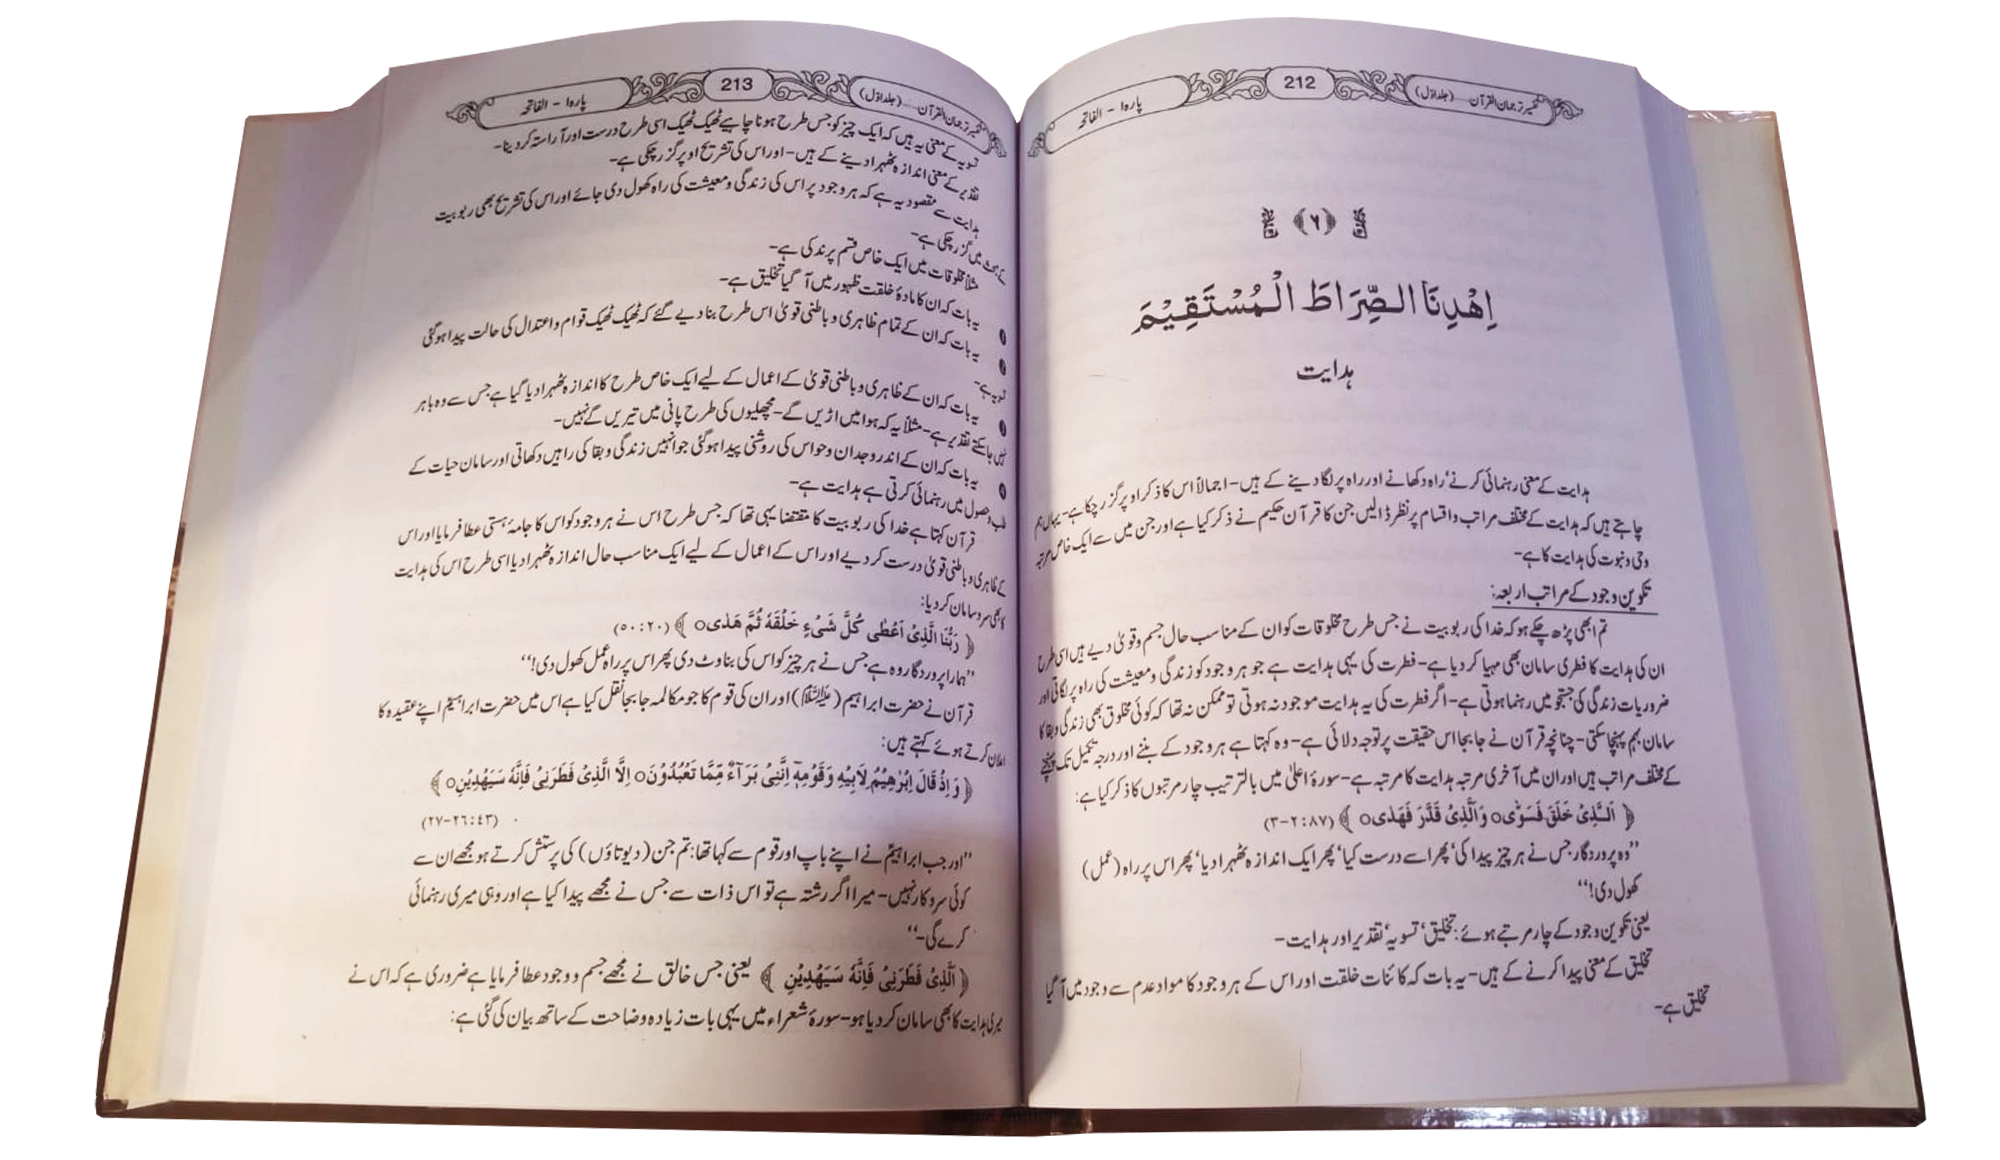 تفسیر ترجمان القرآن (جلد اوّل) 212 پارہ ۱ - الفاتحہ
(۶)
اِهْدِنَا الصِّرَاطَ الْمُسْتَقِيْمَ
ہدایت
ہدایت کے معنی رہنمائی کرنے، راہ دکھانے اور راہ پر لگا دینے کے ہیں- اجمالاً اس کا ذکر اوپر گزر چکا ہے- یہاں ہم
چاہتے ہیں کہ ہدایت کے مختلف مراتب و اقسام پر نظر ڈالیں جن کا قرآن حکیم نے ذکر کیا ہے اور جن میں سے ایک خاص مرتبہ
وحی و نبوت کی ہدایت کا ہے-
تکوین وجود کے مراتب اربعہ:
تم ابھی پڑھ چکے ہو کہ خدا کی ربوبیت نے جس طرح مخلوقات کو ان کے مناسب حال جسم و قویٰ دیے ہیں اسی طرح
ان کی ہدایت کا فطری سامان بھی مہیا کر دیا ہے- فطرت کی یہی ہدایت ہے جو ہر وجود کو زندگی و معیشت کی راہ پر لگاتی اور
ضروریات زندگی کی جستجو میں رہنما ہوتی ہے- اگر فطرت کی یہ ہدایت موجود نہ ہوتی تو ممکن نہ تھا کہ کوئی مخلوق بھی زندگی و بقا کا
سامان بہم پہنچا سکتی- چنانچہ قرآن نے جابجا اس حقیقت پر توجہ دلائی ہے- وہ کہتا ہے ہر وجود کے بننے اور درجہ تکمیل تک پہنچنے
کے مختلف مراتب ہیں اور ان میں آخری مرتبہ ہدایت کا مرتبہ ہے- سورۂ اعلیٰ میں بالترتیب چار مرتبوں کا ذکر کیا ہے:
﴿ الَّذِیْ خَلَقَ فَسَوّٰی○ وَالَّذِیْ قَدَّرَ فَهَدٰی○ ﴾ (۸۷:۲-۳)
”وہ پروردگار جس نے ہر چیز پیدا کی، پھر اسے درست کیا، پھر ایک اندازہ ٹھہرا دیا، پھر اس پر راہ (عمل)
کھول دی!“
یعنی تکوین وجود کے چار مرتبے ہوئے: تخلیق، تسویہ، تقدیر اور ہدایت-
تخلیق کے معنی پیدا کرنے کے ہیں- یہ بات کہ کائنات خلقت اور اس کے ہر وجود کا مواد عدم سے وجود میں آ گیا
تخلیق ہے-
تفسیر ترجمان القرآن (جلد اوّل) 213 پارہ ۱ - الفاتحہ
تسویہ کے معنی یہ ہیں کہ ایک چیز کو جس طرح ہونا چاہیے ٹھیک ٹھیک اسی طرح درست اور آراستہ کر دینا-
تقدیر کے معنی اندازہ ٹھہرا دینے کے ہیں- اور اس کی تشریح اوپر گزر چکی ہے-
ہدایت سے مقصود یہ ہے کہ ہر وجود پر اس کی زندگی و معیشت کی راہ کھول دی جائے اور اس کی تشریح بھی ربوبیت
کے بحث میں گزر چکی ہے-
مثلاً مخلوقات میں ایک خاص قسم پرند کی ہے-
یہ بات کہ ان کا مادۂ خلقت ظہور میں آ گیا تخلیق ہے-
یہ بات کہ ان کے تمام ظاہری و باطنی قویٰ اس طرح بنا دیے گئے کہ ٹھیک ٹھیک قوام و اعتدال کی حالت پیدا ہو گئی
تسویہ ہے-
یہ بات کہ ان کے ظاہری و باطنی قویٰ کے اعمال کے لیے ایک خاص طرح کا اندازہ ٹھہرا دیا گیا ہے جس سے وہ باہر
نہیں جا سکتے تقدیر ہے- مثلاً یہ کہ ہوا میں اڑیں گے- مچھلیوں کی طرح پانی میں تیریں گے نہیں-
یہ بات کہ ان کے اندر وجدان و حواس کی روشنی پیدا ہو گئی جو انہیں زندگی و بقا کی راہیں دکھاتی اور سامان حیات کے
طلب و حصول میں رہنمائی کرتی ہے ہدایت ہے-
قرآن کہتا ہے خدا کی ربوبیت کا مقتضا یہی تھا کہ جس طرح اس نے ہر وجود کو اس کا جامۂ ہستی عطا فرمایا اور اس
کے ظاہری و باطنی قویٰ درست کر دیے اور اس کے اعمال کے لیے ایک مناسب حال اندازہ ٹھہرا دیا اسی طرح اس کی ہدایت
کا بھی سر و سامان کر دیا:
﴿ رَبُّنَا الَّذِیْ اَعْطٰی كُلَّ شَیْءٍ خَلْقَهٗ ثُمَّ هَدٰی○ ﴾ (۲۰:۵۰)
”ہمارا پروردگار وہ ہے جس نے ہر چیز کو اس کی بناوٹ دی پھر اس پر راہ عمل کھول دی!“
قرآن نے حضرت ابراہیم (علیہ السلام) اور ان کی قوم کا جو مکالمہ جابجا نقل کیا ہے اس میں حضرت ابراہیمؑ اپنے عقیدہ کا
اعلان کرتے ہوئے کہتے ہیں:
﴿ وَاِذْ قَالَ اِبْرٰهِیْمُ لِاَبِیْهِ وَقَوْمِهٖۤ اِنَّنِیْ بَرَآءٌ مِّمَّا تَعْبُدُوْنَ○ اِلَّا الَّذِیْ فَطَرَنِیْ فَاِنَّهٗ سَیَهْدِیْنِ○ ﴾
(۴۳:۲۶-۲۷)
”اور جب ابراہیمؑ نے اپنے باپ اور قوم سے کہا تھا: تم جن (دیوتاؤں) کی پرستش کرتے ہو مجھے ان سے
کوئی سروکار نہیں- میرا اگر رشتہ ہے تو اس ذات سے جس نے مجھے پیدا کیا ہے اور وہی میری رہنمائی
کرے گی-“
﴿ الَّذِیْ فَطَرَنِیْ فَاِنَّهٗ سَیَهْدِیْنِ ﴾ یعنی جس خالق نے مجھے جسم و وجود عطا فرمایا ہے ضروری ہے کہ اس نے
میری ہدایت کا بھی سامان کر دیا ہو- سورۂ شعراء میں یہی بات زیادہ وضاحت کے ساتھ بیان کی گئی ہے: